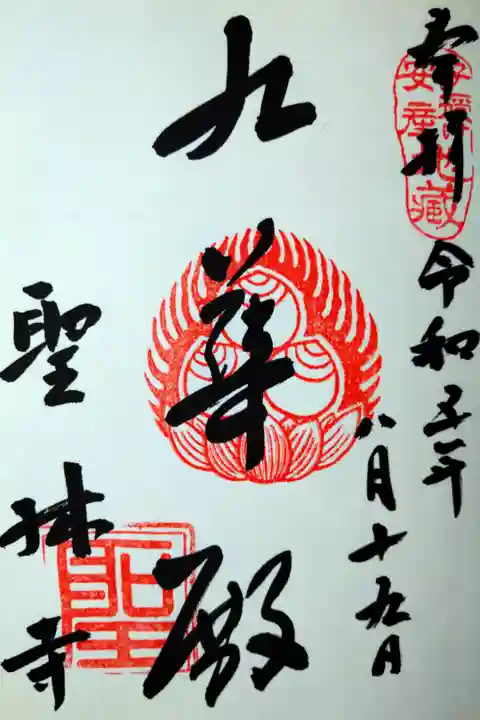 奉拝
令和五年
八月十九日
九華殿
聖林寺
聖